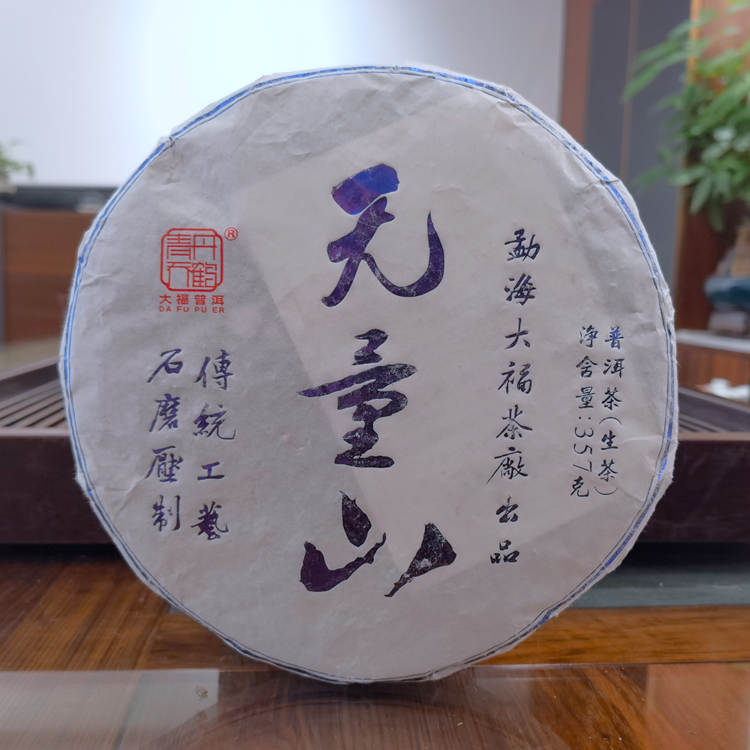 普洱茶(生茶)
净含量:357克
勐海大福茶廠出品
无量山
®
大福普洱
DA FU PU ER
傳統工藝
石磨壓制